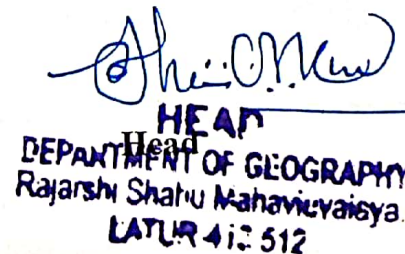 HEAD
Head
DEPARTMENT OF GEOGRAPHY
Rajarshi Shahu Mahavidyalaya
LATUR 512